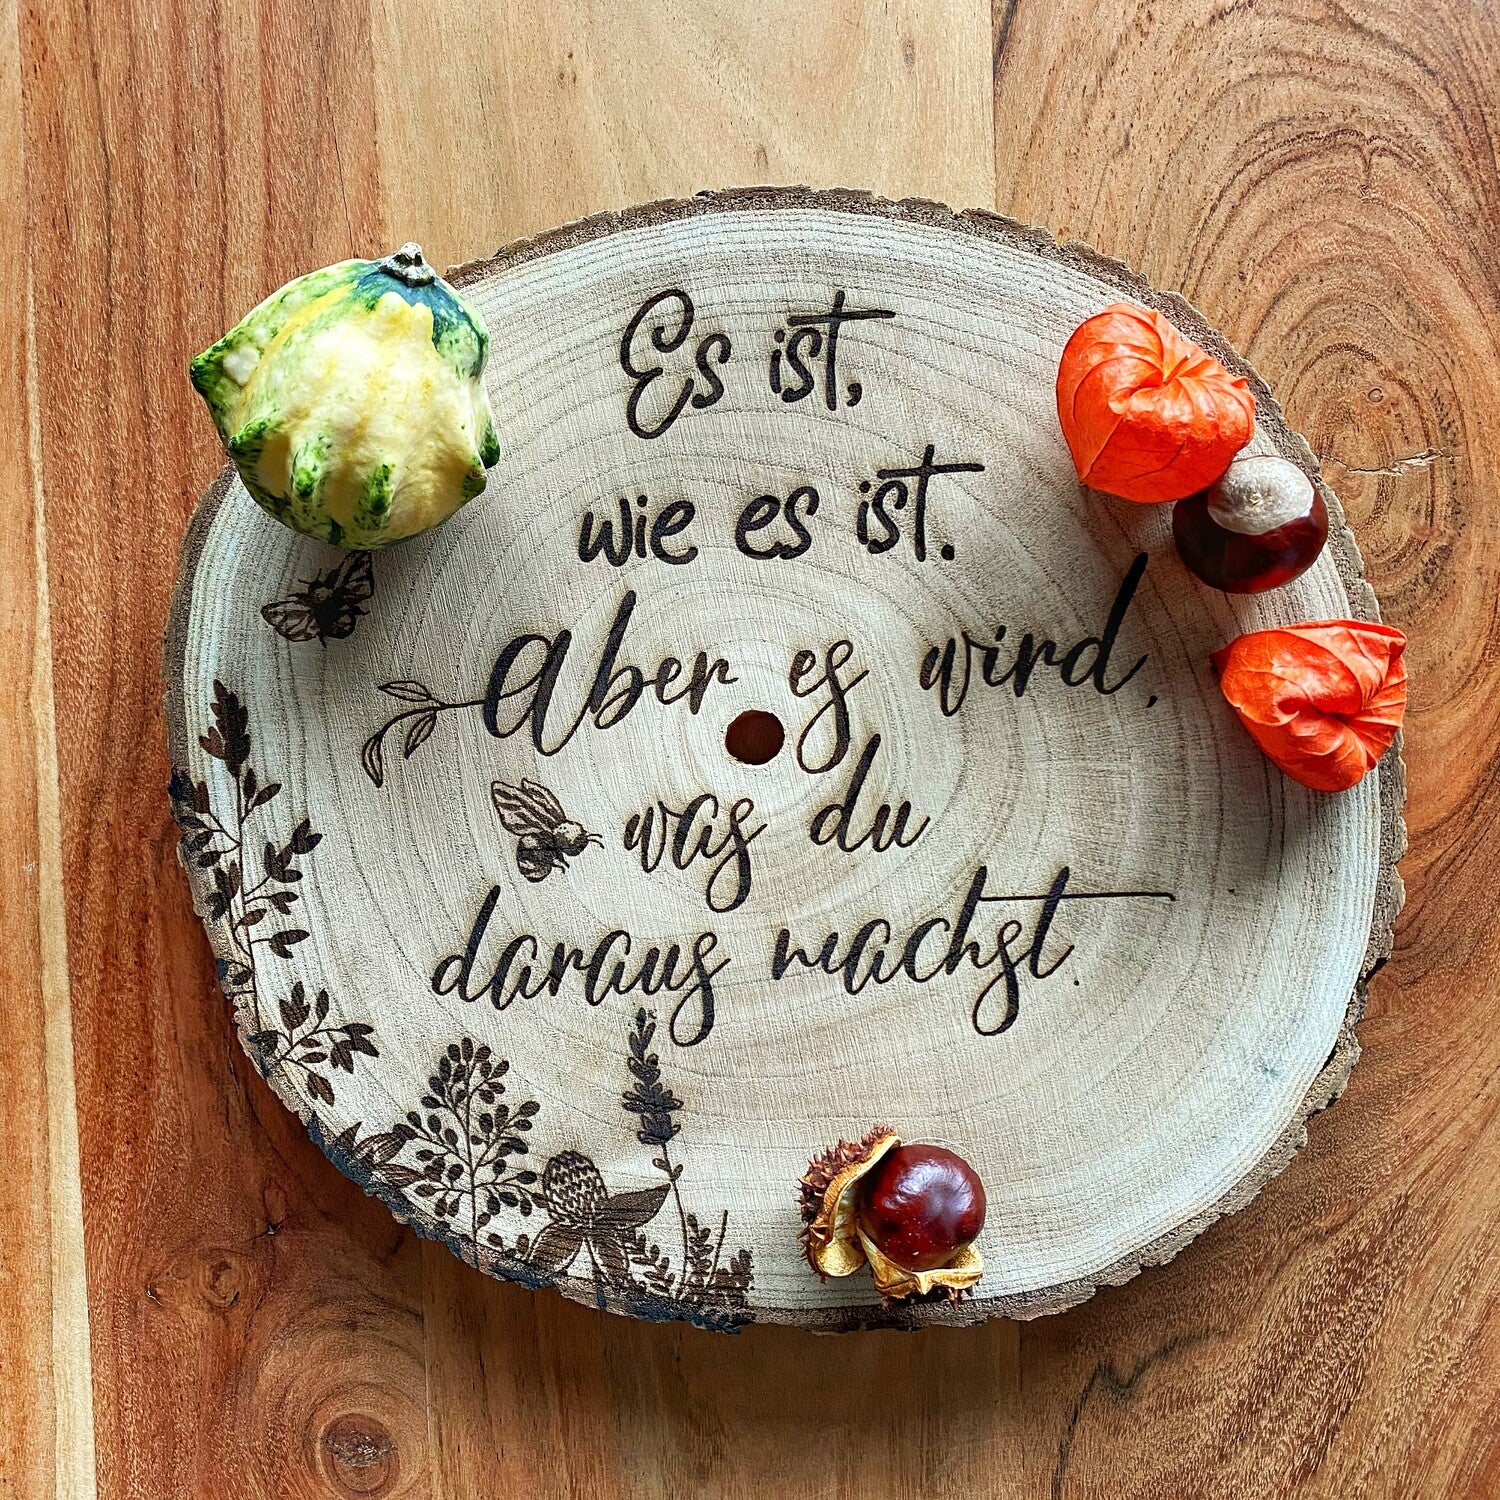 Es ist,
wie es ist.
Aber es wird,
was du
daraus machst.